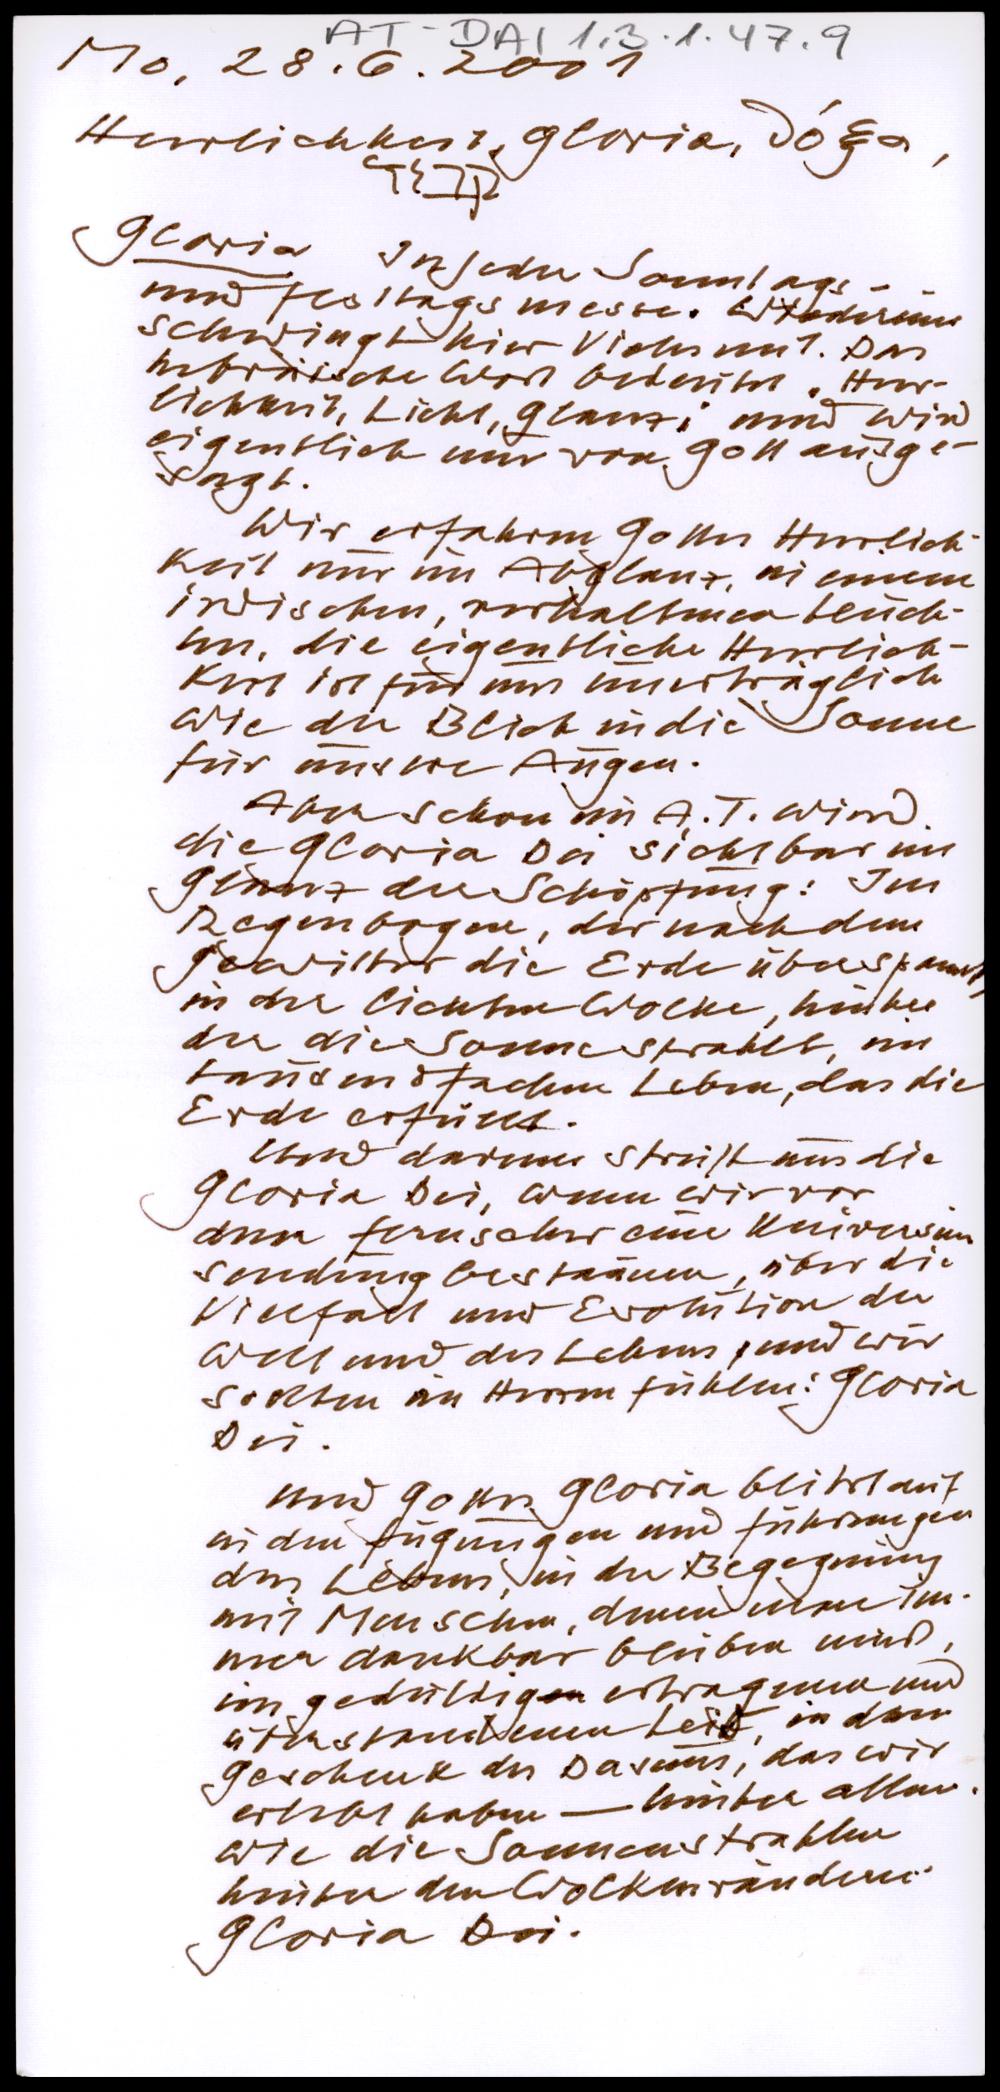 AT-DAI 1.3.1.47.9
Mo, 28.6.2001
Herrlichkeit, Gloria, Dóξa,
Gloria In jeder Sonntags-
und Festtagsmesse. Wiederum
schwingt hier Vieles mit. Das
hebräische Wort bedeutet „Herr-
lichkeit, Licht, Glanz" und wird
eigentlich nur von Gott ausge-
sagt.
Wir erfahren Gottes Herrlich-
keit nur im Abglanz, in einem
irdischen, verhaltenen Leuch-
ten, die eigentliche Herrlich-
keit ist für uns unerträglich
wie der Blick in die Sonne
für unsere Augen.
Aber schon im A.T. wird
die Gloria Dei sichtbar im
Glanz der Schöpfung: Im
Regenbogen, der nach dem
Gewitter die Erde überspannt,
in der lichten Wolke, hinter
der die Sonne strahlt, im
tausendfachen Leben, das die
Erde erfüllt.
Und darum streift uns die
Gloria Dei, wenn wir vor
dem Fernseher eine Universum
sendung bestaunen, über die
Vielfalt und Evolution der
Welt und des Lebens, und wir
sollten im Herzen fühlen: Gloria
Dei.
Und Gottes Gloria blitzt auf
in den Fügungen und Führungen
des Lebens, in der Begegnung
mit Menschen, denen man im-
mer dankbar bleiben wird,
im geduldig ertragenen und
überstandenen Leid, in dem
Geschenk des Daseins, das wir
erlebt haben — hinter allem.
Wie die Sonnenstrahlen
hinter den Wolkenrändern:
Gloria Dei.